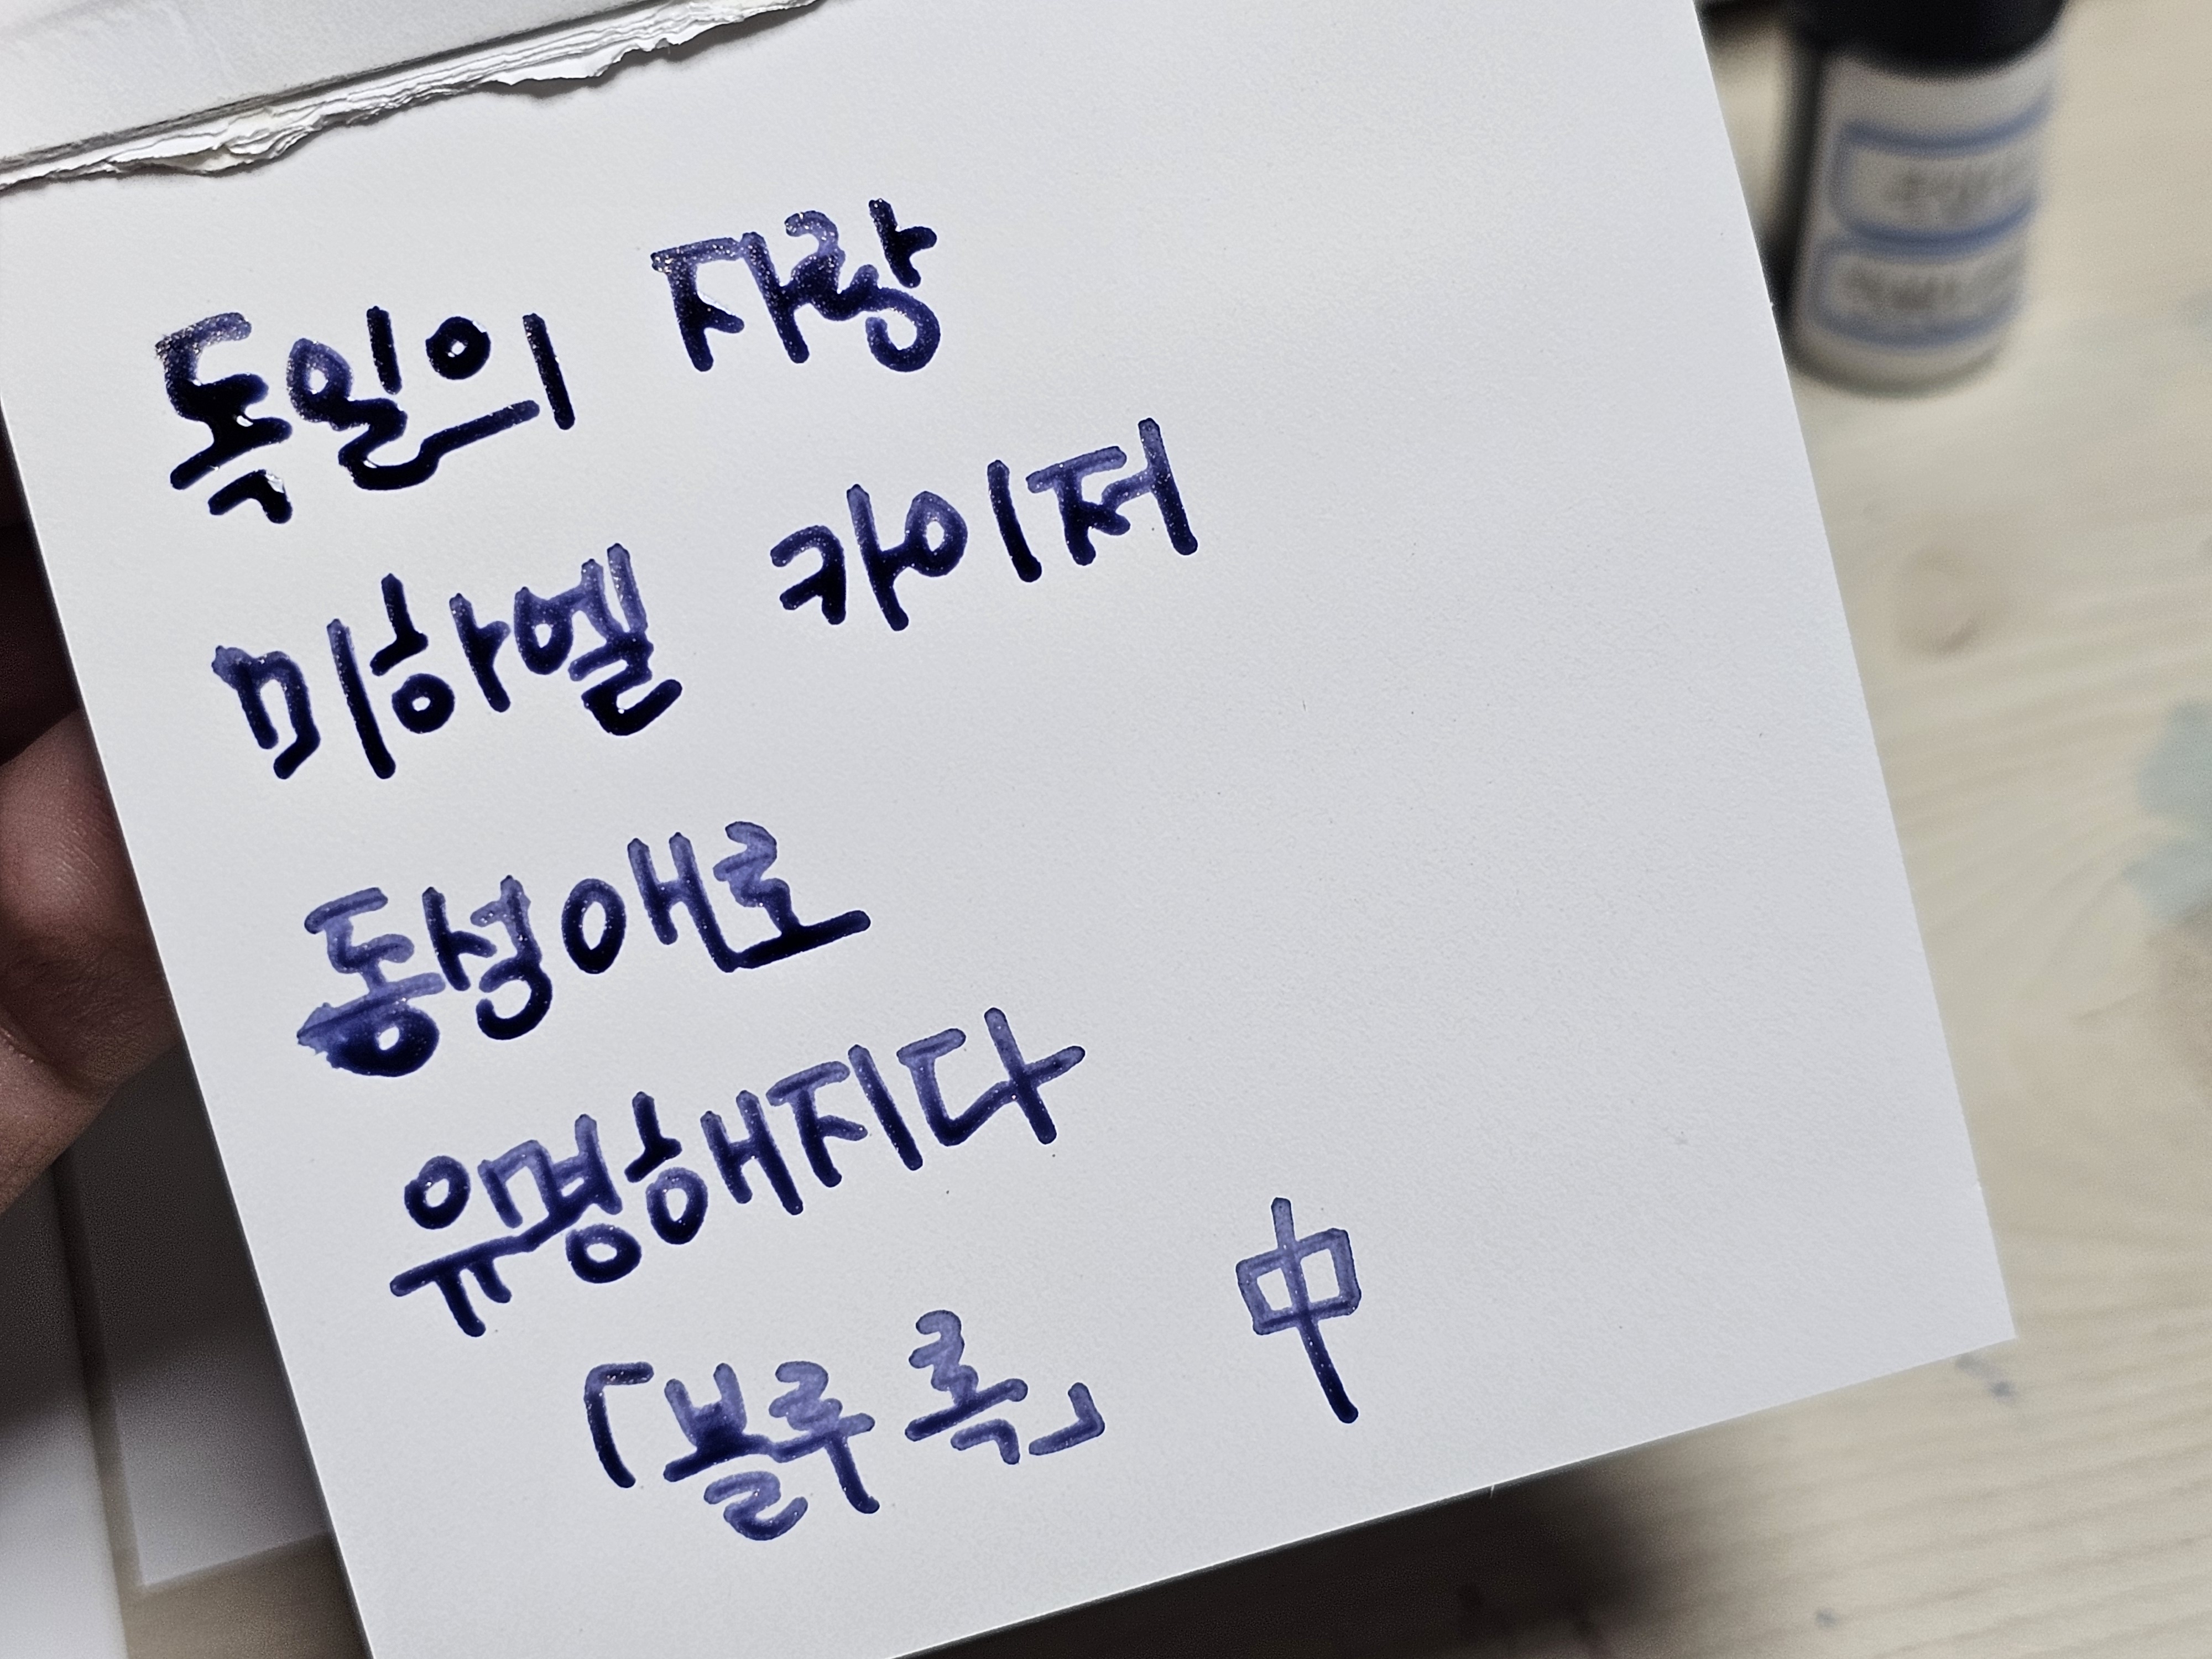 독일의 자랑
미하엘 카이저
동성애로
유명해지다
「블루 록」 中